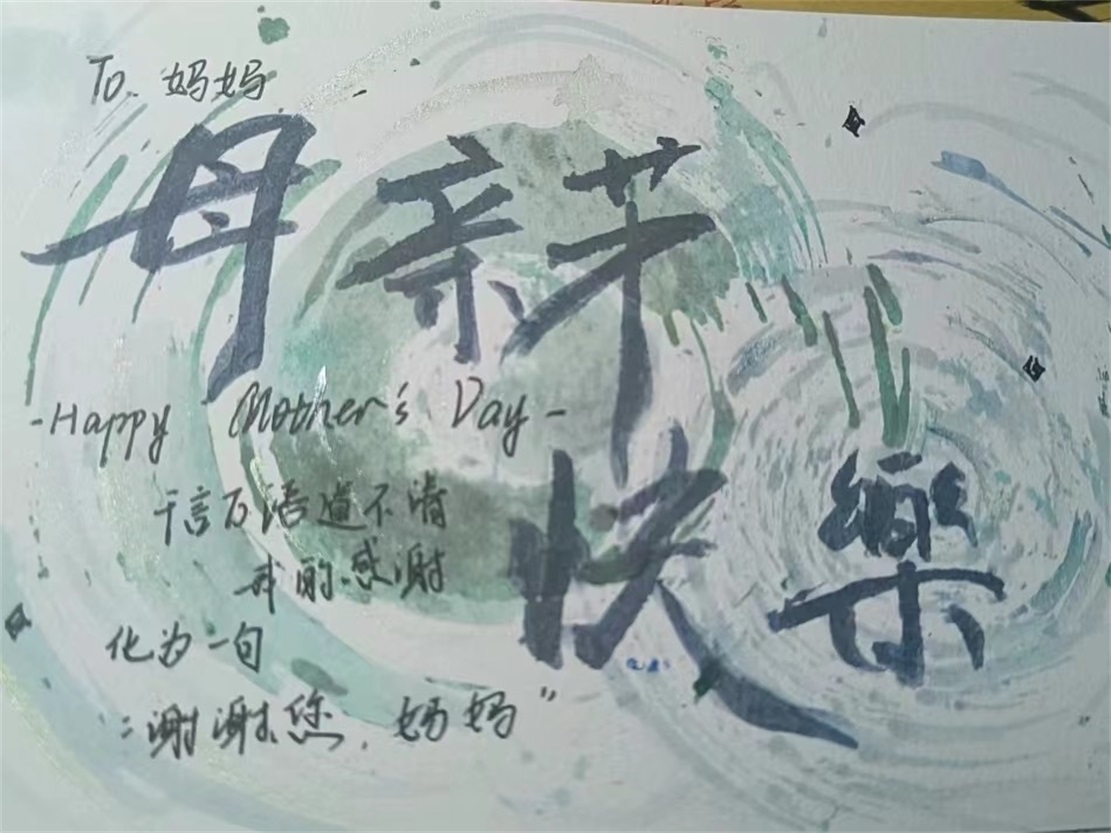 To. 妈妈
母亲节
快樂
-Happy Mother's Day-
千言万语道不清
我的感谢
化为一句
“谢谢您，妈妈”